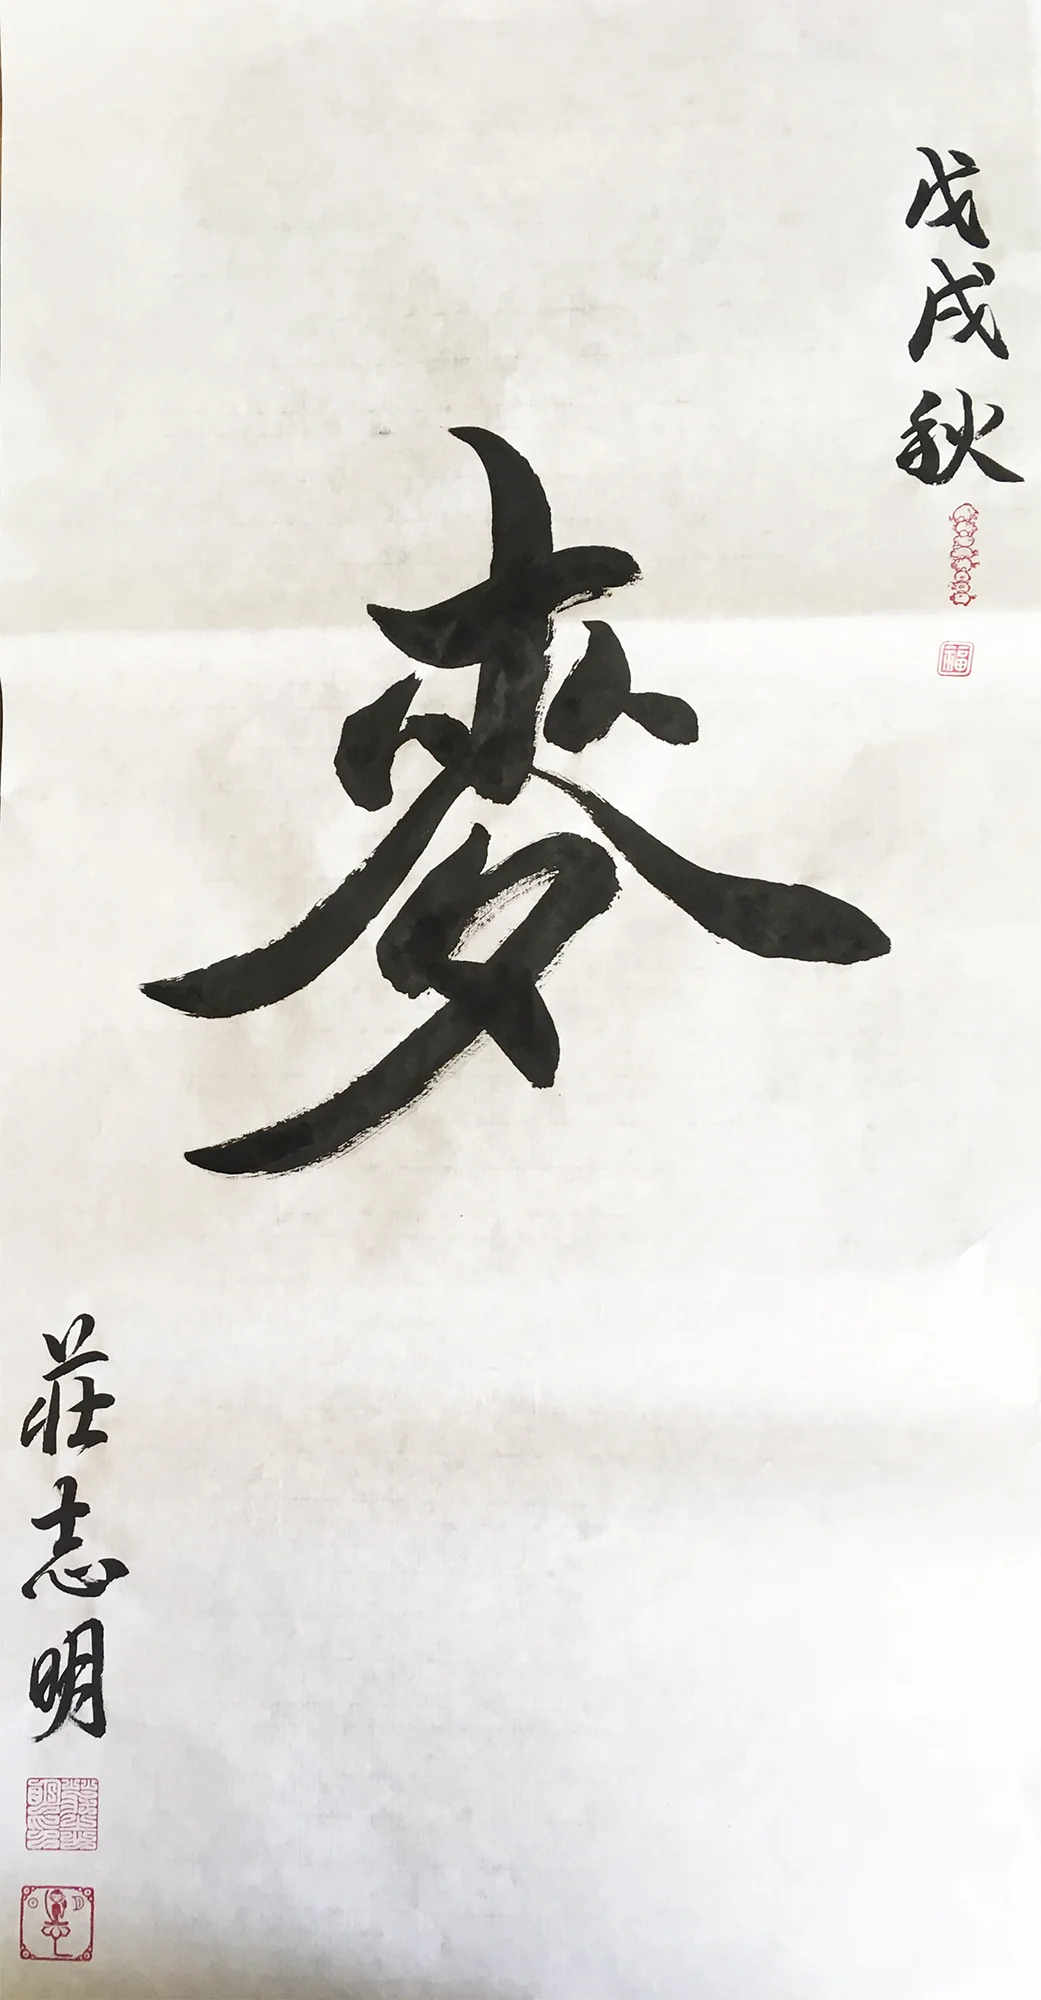 戊戌秋
福
麥
莊志明